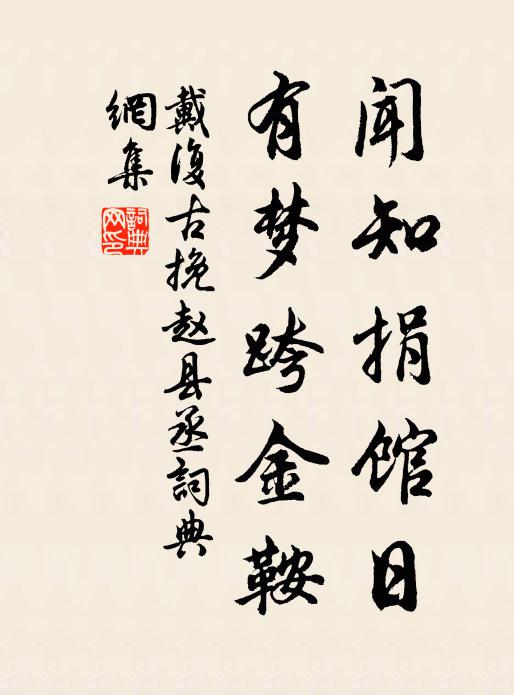 闻知捐馆日
有梦跨金鞍
戴復古挽赵县丞詞典
網集
詞典
网印